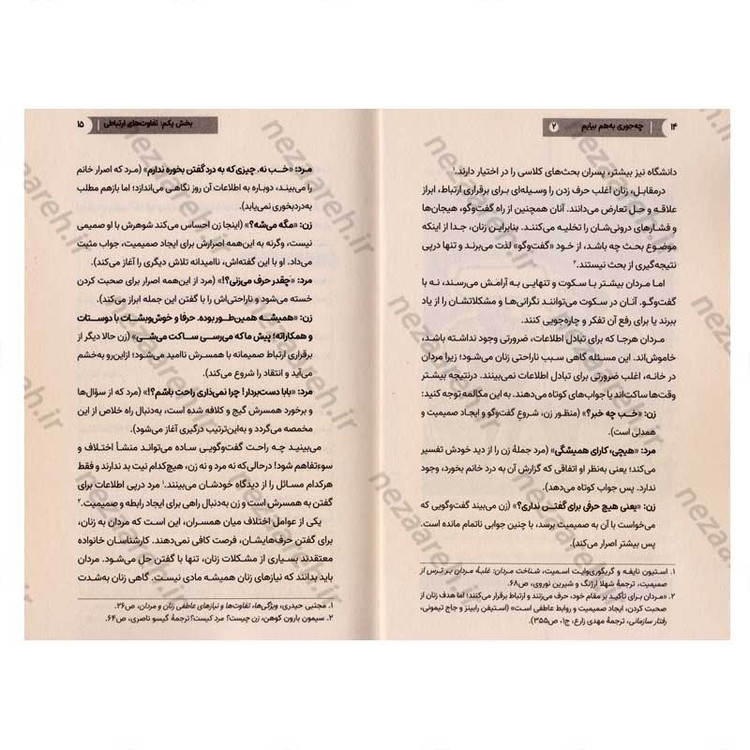 ۱۴ چه‌جوری به‌هم بیایم ۲
دانشگاه نیز بیشتر، پسران بحث‌های کلاسی را در اختیار دارند.۱
درمقابل، زنان اغلب حرف زدن را وسیله‌ای برای برقراری ارتباط، ابراز
علاقه و حل تعارض می‌دانند. آنان همچنین از راه گفت‌وگو، هیجان‌ها
و فشارهای درونی‌شان را تخلیه می‌کنند. بنابراین زنان، جدا از اینکه
موضوع بحث چه باشد، از خود «گفت‌وگو» لذت می‌برند و تنها درپی
نتیجه‌گیری از بحث نیستند.۲
اما مردان بیشتر با سکوت و تنهایی به آرامش می‌رسند، نه با
گفت‌وگو. آنان در سکوت می‌توانند نگرانی‌ها و مشکلاتشان را از یاد
ببرند یا برای رفع آن تفکر و چاره‌جویی کنند.
مردان هرجا که برای تبادل اطلاعات، ضرورتی وجود نداشته باشد،
خاموش‌اند. این مسئله گاهی سبب ناراحتی زنان می‌شود؛ زیرا مردان
در خانه، اغلب ضرورتی برای تبادل اطلاعات نمی‌بینند. درنتیجه بیشتر
وقت‌ها ساکت‌اند یا جواب‌های کوتاه می‌دهند. به این مکالمه توجه کنید:
زن: «خب چه خبر؟» (منظور زن، شروع گفت‌وگو و ایجاد صمیمیت و
همدلی است).
مرد: «هیچی، کارای همیشگی» (مرد جملهٔ زن را از دید خودش تفسیر
می‌کند؛ یعنی به‌نظر او اتفاقی که گزارش آن به درد خانم بخورد، وجود
ندارد. پس جواب کوتاه می‌دهد).
زن: «یعنی هیچ حرفی برای گفتن نداری؟» (زن می‌بیند گفت‌وگویی که
می‌خواست با آن به صمیمیت برسد، با چنین جوابی ناتمام مانده است.
پس بیشتر اصرار می‌کند).
۱. استیون نایفه و گریگوری‌وایت اسمیت، شناخت مردان: غلبهٔ مردان بر ترس از
صمیمیت، ترجمهٔ شهلا ارژنگ و شیرین نوروی، ص۶۸.
۲. «مردان برای تأکید بر مقام خود، حرف می‌زنند و ارتباط برقرار می‌کنند؛ اما هدف زنان از
صحبت کردن، ایجاد صمیمیت و روابط عاطفی است» (استیفن رابینز و جاج تیموتی،
رفتار سازمانی، ترجمهٔ مهدی زارع، ج۱، ص۳۵۵).
بخش یکم: تفاوت‌های ارتباطی ۱۵
مرد: «خب نه. چیزی که به درد گفتن بخوره ندارم» (مرد که اصرار خانم
را می‌بیند، دوباره به اطلاعات آن روز نگاهی می‌اندازد؛ اما بازهم مطلب
به‌دردبخوری نمی‌یابد).
زن: «مگه می‌شه؟» (اینجا زن احساس می‌کند شوهرش با او صمیمی
نیست، وگرنه به این‌همه اصرارش برای ایجاد صمیمیت، جواب مثبت
می‌داد. او با این گفته‌اش، ناامیدانه تلاش دیگری را آغاز می‌کند).
مرد: «چقدر حرف می‌زنی؟!» (مرد از این‌همه اصرار برای صحبت کردن
خسته می‌شود و ناراحتی‌اش را با گفتن این جمله ابراز می‌کند).
زن: «همیشه همین‌طور بوده. حرفا و خوش‌وبشات با دوستات
و همکاراته؛ پیش ما که می‌رسی ساکت می‌شی» (زن حالا دیگر از
برقراری ارتباط صمیمانه با همسرش ناامید می‌شود؛ ازاین‌رو به‌خشم
می‌آید و انتقاد را شروع می‌کند).
مرد: «بابا دست‌بردار! چرا نمی‌ذاری راحت باشم؟!» (مرد که از سؤال‌ها
و برخورد همسرش گیج و کلافه شده است، به‌دنبال راه خلاص از این
مخمصه می‌گردد و به‌این‌ترتیب درگیری آغاز می‌شود).
می‌بینید چه راحت گفت‌وگویی ساده می‌تواند منشأ اختلاف و
سوءتفاهم شود! درحالی‌که نه مرد و نه زن، هیچ‌کدام نیت بد ندارند و فقط
هرکدام مسائل را از دیدگاه خودشان می‌بینند.۱ مرد درپی اطلاعات برای
گفتن به همسرش است و زن به‌دنبال راهی برای ایجاد رابطه و صمیمیت.۲
یکی از عوامل اختلاف میان همسران، این است که مردان به زنان،
برای گفتن حرف‌هایشان، فرصت کافی نمی‌دهند. کارشناسان خانواده
معتقدند بسیاری از مشکلات زنان، تنها با گفتن حل می‌شود. مردان
باید بدانند که نیازهای زنان همیشه مادی نیست. گاهی زنان به‌شدت
۱. مجتبی حیدری، ویژگی‌ها، تفاوت‌ها و نیازهای عاطفی زنان و مردان، ص۲۶.
۲. سیمون بارون کوهن، زن چیست؟ مرد کیست؟ ترجمهٔ گیسو ناصری، ص۶۴.
nezaareh.ir